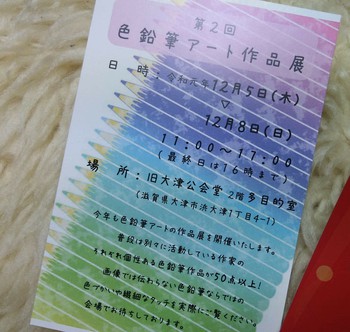 第2回
色鉛筆アート作品展
日 時：令和元年12月5日(木)
▽
12月8日(日)
11:00～17:00
(最終日は16時まで)
場 所：旧大津公会堂 2階多目的室
(滋賀県大津市浜大津1丁目4-1)
今年も色鉛筆アートの作品展を開催いたします。
普段は別々に活動している作家の
それぞれ個性ある色鉛筆作品が50点以上!
画像では伝わらない色鉛筆ならではの
色づかいや繊細なタッチを実際にご覧ください。
会場でお待ちしております。